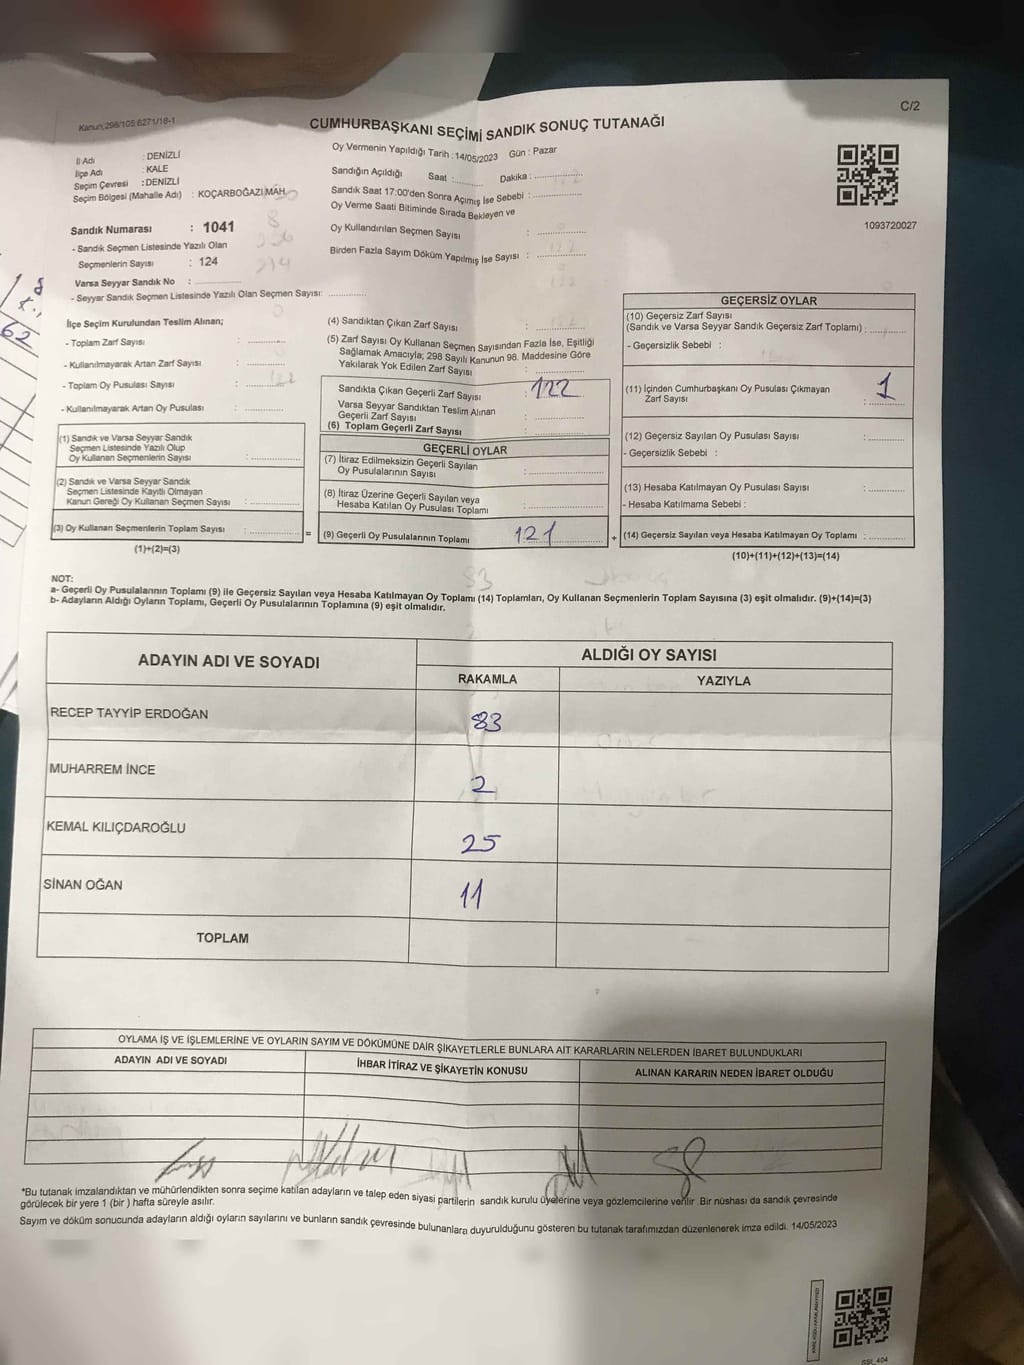 C/2
Kanun;298/105;6271/18-1
CUMHURBAŞKANI SEÇİMİ SANDIK SONUÇ TUTANAĞI
İl Adı : DENİZLİ
İlçe Adı : KALE
Seçim Çevresi : DENİZLİ
Seçim Bölgesi (Mahalle Adı) : KOÇARBOĞAZI MAH.
Oy Vermenin Yapıldığı Tarih : 14/05/2023 Gün : Pazar
Sandığın Açıldığı Saat :.......... Dakika : ..............
Sandık Saat 17:00'den Sonra Açımış İse Sebebi : ..............
Oy Verme Saati Bitiminde Sırada Bekleyen ve
Oy Kullandırılan Seçmen Sayısı : ..............
Birden Fazla Sayım Döküm Yapılmış İse Sayısı : ..............
1093720027
Sandık Numarası : 1041
- Sandık Seçmen Listesinde Yazılı Olan
Seçmenlerin Sayısı : 124
Varsa Seyyar Sandık No : ..............
- Seyyar Sandık Seçmen Listesinde Yazılı Olan Seçmen Sayısı: ..............
İlçe Seçim Kurulundan Teslim Alınan;
- Toplam Zarf Sayısı : ..............
- Kullanılmayarak Artan Zarf Sayısı : ..............
- Toplam Oy Pusulası Sayısı : ..............
- Kullanılmayarak Artan Oy Pusulası : ..............
(1) Sandık ve Varsa Seyyar Sandık
Seçmen Listesinde Yazılı Olup
Oy Kullanan Seçmenlerin Sayısı : ..............
(2) Sandık ve Varsa Seyyar Sandık
Seçmen Listesinde Kayıtlı Olmayan
Kanun Gereği Oy Kullanan Seçmen Sayısı : ..............
(3) Oy Kullanan Seçmenlerin Toplam Sayısı : .............. =
(1)+(2)=(3)
(4) Sandıktan Çıkan Zarf Sayısı : ..............
(5) Zarf Sayısı Oy Kullanan Seçmen Sayısından Fazla İse, Eşitliği
Sağlamak Amacıyla; 298 Sayılı Kanunun 98. Maddesine Göre
Yakılarak Yok Edilen Zarf Sayısı : ..............
Sandıkta Çıkan Geçerli Zarf Sayısı : 122
Varsa Seyyar Sandıktan Teslim Alınan
Geçerli Zarf Sayısı : ..............
(6) Toplam Geçerli Zarf Sayısı : ..............
GEÇERLİ OYLAR
(7) İtiraz Edilmeksizin Geçerli Sayılan
Oy Pusulalarının Sayısı : ..............
(8) İtiraz Üzerine Geçerli Sayılan veya
Hesaba Katılan Oy Pusulası Toplamı : ..............
(9) Geçerli Oy Pusulalarının Toplamı 121 +
GEÇERSİZ OYLAR
(10) Geçersiz Zarf Sayısı
(Sandık ve Varsa Seyyar Sandık Geçersiz Zarf Toplamı) : ..............
- Geçersizlik Sebebi :
(11) İçinden Cumhurbaşkanı Oy Pusulası Çıkmayan
Zarf Sayısı : 1
(12) Geçersiz Sayılan Oy Pusulası Sayısı : ..............
- Geçersizlik Sebebi :
(13) Hesaba Katılmayan Oy Pusulası Sayısı : ..............
- Hesaba Katılmama Sebebi :
(14) Geçersiz Sayılan veya Hesaba Katılmayan Oy Toplamı : ..............
(10)+(11)+(12)+(13)=(14)
NOT:
a- Geçerli Oy Pusulalarının Toplamı (9) ile Geçersiz Sayılan veya Hesaba Katılmayan Oy Toplamı (14) Toplamları, Oy Kullanan Seçmenlerin Toplam Sayısına (3) eşit olmalıdır. (9)+(14)=(3)
b- Adayların Aldığı Oyların Toplamı, Geçerli Oy Pusulalarının Toplamına (9) eşit olmalıdır.
ADAYIN ADI VE SOYADI
ALDIĞI OY SAYISI
RAKAMLA YAZIYLA
RECEP TAYYİP ERDOĞAN 83
MUHARREM İNCE 2
KEMAL KILIÇDAROĞLU 25
SİNAN OĞAN 11
TOPLAM
OYLAMA İŞ VE İŞLEMLERİNE VE OYLARIN SAYIM VE DÖKÜMÜNE DAİR ŞİKAYETLERLE BUNLARA AİT KARARLARIN NELERDEN İBARET BULUNDUKLARI
ADAYIN ADI VE SOYADI İHBAR İTİRAZ VE ŞİKAYETİN KONUSU ALINAN KARARIN NEDEN İBARET OLDUĞU
*Bu tutanak imzalandıktan ve mühürlendikten sonra seçime katılan adayların ve talep eden siyasi partilerin sandık kurulu üyelerine veya gözlemcilerine verilir .Bir nüshası da sandık çevresinde
görülecek bir yere 1 (bir ) hafta süreyle asılır.
Sayım ve döküm sonucunda adayların aldığı oyların sayılarını ve bunların sandık çevresinde bulunanlara duyurulduğunu gösteren bu tutanak tarafımızdan düzenlenerek imza edildi. 14/05/2023
62